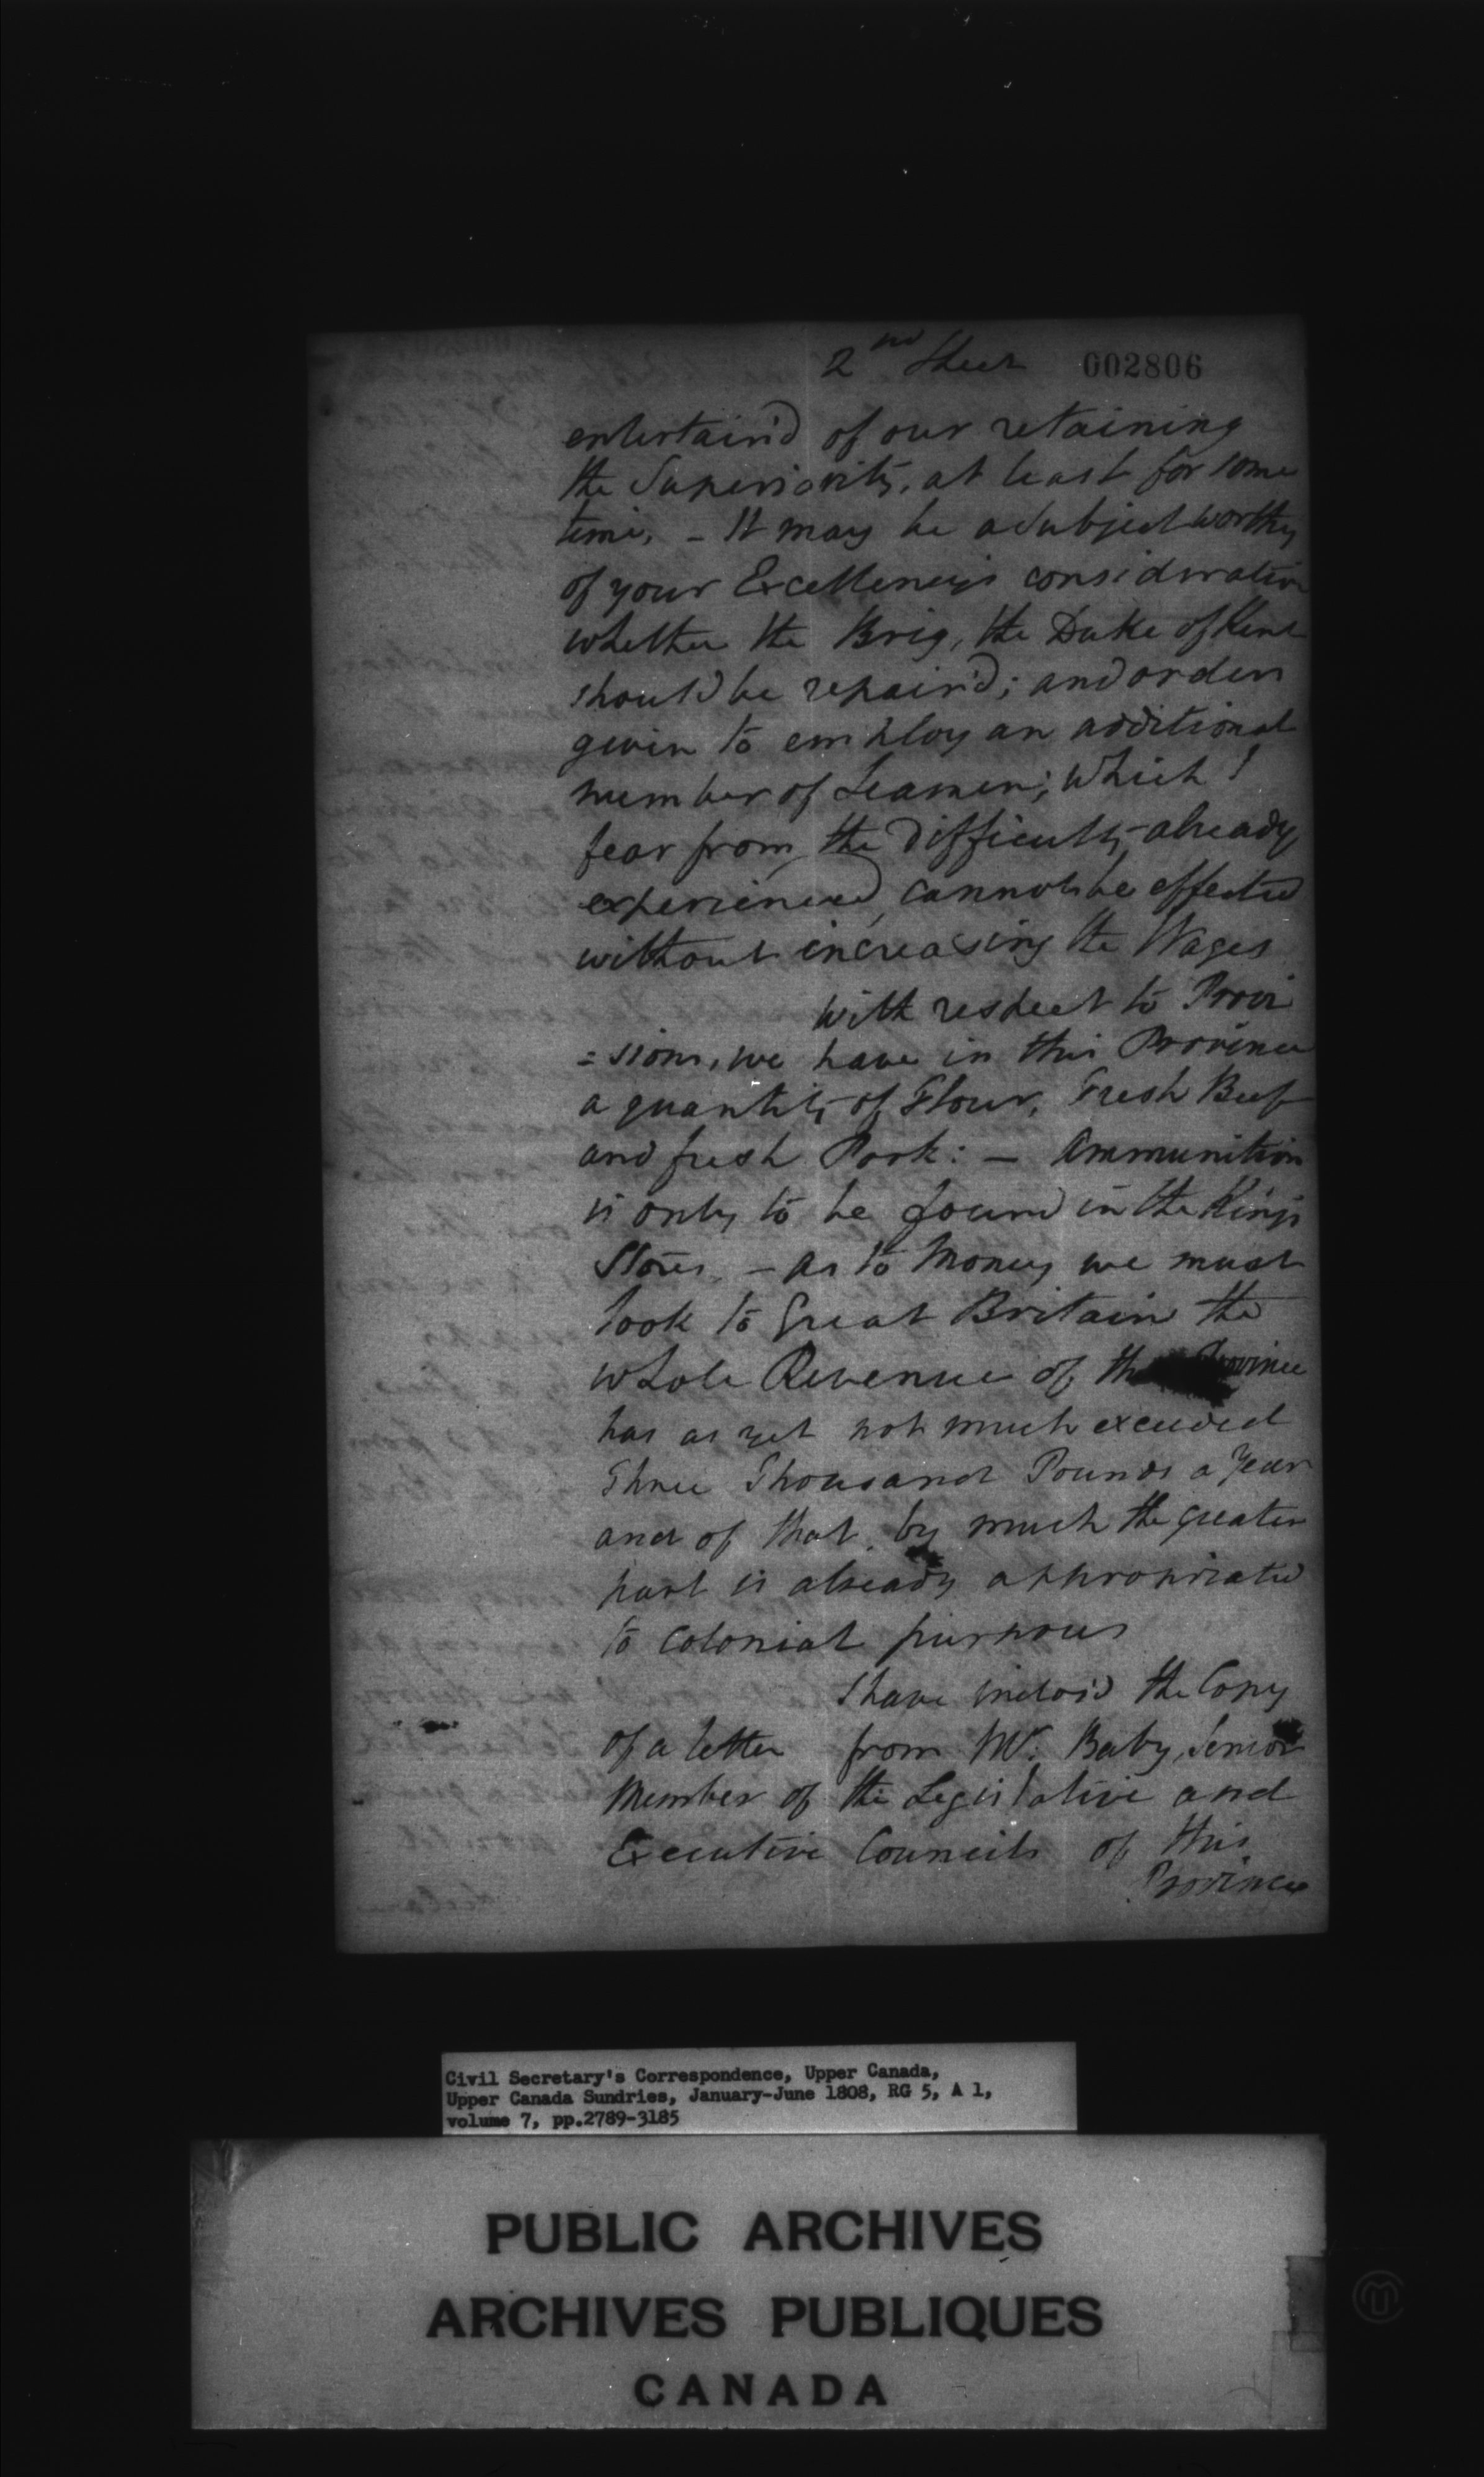 2nd Sheet 002806
entertain'd of our retaining
the Superiority, at least for some
time, - It may be a Subject worthy
of your Excellency's consideration
whether the Brig, the Duke of Kent
should be repair'd; and orders
given to employ an additional
number of Seamen; which I
fear from the difficulty already
experienced, cannot be effected
without increasing the Wages
With respect to Provi
=sions, we have in this Province
a quantity of Flour, Fresh Beef
and fresh Pork: - Ammunition
is only to be found in the Kings
Stores, - as to Money we must
look to Great Britain the
whole Revenue of the Province
has as yet not much exceeded
Three Thousand Pounds a Year
and of that, by much the greater
part is already appropriated
to Colonial purposes
I have inclos'd the Copy
of a letter from Mr. Baby, Senior
Member of the Legislative and
Executive Councils of this
Province
Civil Secretary's Correspondence, Upper Canada,
Upper Canada Sundries, January-June 1808, RG 5, A 1,
volume 7, pp.2789-3185
PUBLIC ARCHIVES
ARCHIVES PUBLIQUES
CANADA